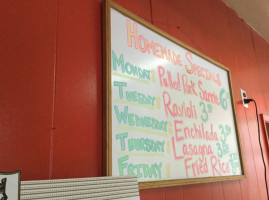 Homemade Specials
Monday Pulled Pork
Tuesday Ravioli 3
Wednesday Enchilada
Thursday Lasagna
Friday Fried Rice